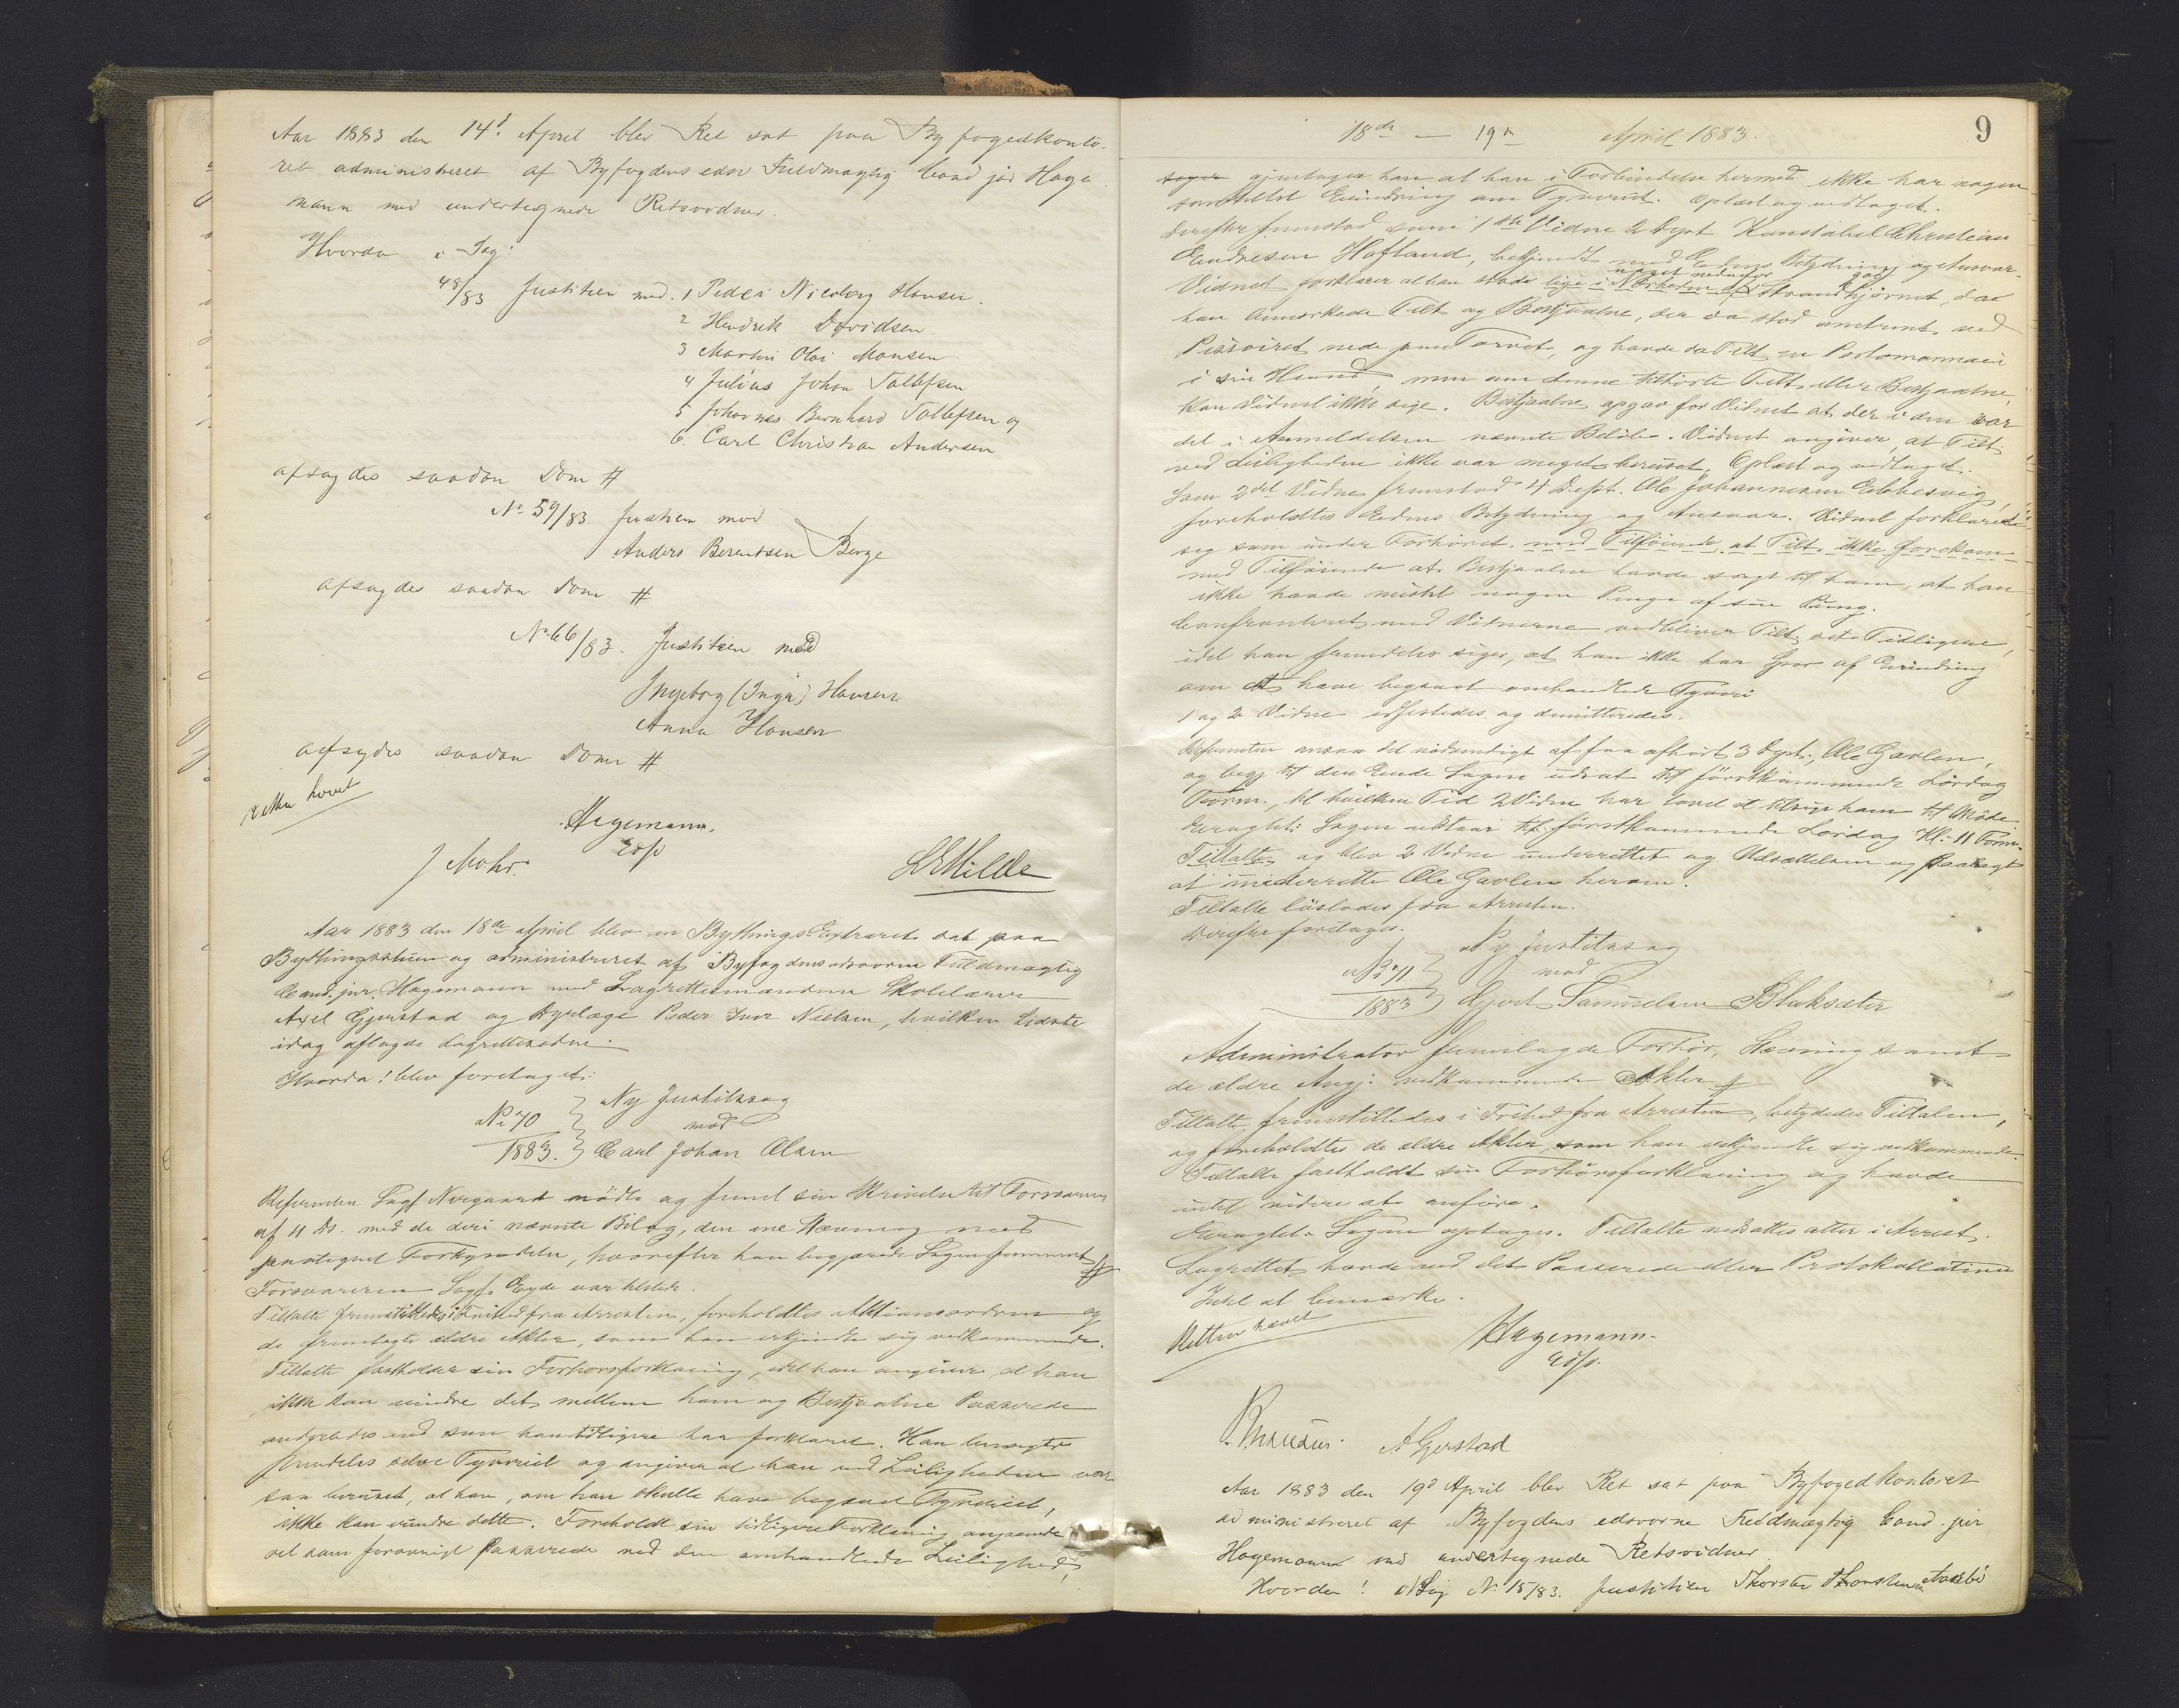 Aar 1883 den 14d. April blev Ret sat paa Byfogedkonto-
ret administreret af Byfogdens edsv Fuldmægtig Cand jur Hage
mann med undertegnede Retsvidner.
Hvorda i Sag:
48/83 Justitien mod. 1 Peder Nicolay Hansen.
2 Hendrik Davidsen
3 Martin Olai Monsen
4 Julius Johan Tollefsen
5 Johannes Bernhard Tollefsen og
6. Carl Christian Andersen
afsagdes saadan Dom #
No 59/83. Justitien mod
Anders Berentsen Berge
afsagdes saadan Dom #
No 66/83. Justitien mod
Ingeborg (Inga) Hansen
Anna Hansen
afsagdes saadan Dom #
Retten hævet
Hagemann.
edsv
J Mohr.
Milde
Aar 1883 den 18de April blev en Bythings Extraret sat paa
Bythingsstuen og administreret af Byfogdens edsvorne Fuldmægtig
Cand. jur. Hagemann med Lagrettesmændene Skolelærer
Axel Gjerstad og Dyrlæge Peder Iver Nielsen, hvilken Sidste
idag aflagde Lagretteseden.
Hvorda! blev foretaget:
No 70
1883.
Ny Justitssag
mod
Carl Johan Olsen
Referenten Sagf Norgaard mødte og freml sin Skrivelse til Forsvareren
af 11 ds. med de deri nævnte Bilag, den ene Stævning med
paategnet Forkyndelse, hvorefter han begjærede Sagen fremmet #
Forsvareren Sagf. Eyde var tilstede.
Tiltalte fremstilledes i Frihed fra Arresten, foreholdtes Aktionsordren og
de fremlagte ældre Akter, som han erkjendte sig vedkommende.
Tiltalte fastholder sin Forhørsforklaring, idet han angiver at han
ikke kan erindre det mellem ham og Bestjaalne Passerede
anderledes end som han tidligere har forklaret. Han benægter
fremdeles selve Tyveriet og angiver at han ved Leiligheden var
saa beruset, at han, om han skulde have begaaet Tyveriet,
ikke kan erindre dette. Foreholdt sin tidligere Forklaring angaaende
det som forøvrigt passerede ved den omhandlede Leilighed,
18de — 19de April 1883.
9
siger gjentager han at han i Forbindelse hermed ikke har nogen
somhelst Erindring om Tyveriet. Oplæst og vedtaget.
Derefter fremstod som 1ste Vidne 2 Dept Konstabel Christian
Endresen Hafland, bekjendt med Edens Betydning og Ansvar.
noget nedenfor
Vidnet forklarer at han stode lige i Nærheden af Strandhjørnet, da
han bemærkede Tilt. og Bestjaalne, der da stod omtrent ved
Pissoiret nede paa Torvet, og havde da Tilt en Portemonnaie
i sin Haand, men om denne tilhørte Tilt. eller Bestjaalne,
kan Vidnet ikke sige. Bestjaalne opgav for Vidnet at der i den var
det i Anmeldelsen nævnte Beløb. Vidnet angiver, at Tilt.
ved Leiligheden ikke var meget beruset. Oplæst og vedtaget.
Som 2det Vidne fremstod 4 Dept. Ole Johannesen Ebbesvig,
foreholdtes Edens Betydning og Ansvar. Vidnet forklarede
sig som under Forhøret. med Tilføiende at Tilt. ikke forekom
med Tilføiende at Bestjaalne havde sagt til ham, at han
ikke havde mistet nogen Penge af sin Pung.
Confronteret med Vidnerne vedbliver Tilt. det Tidligere,
idet han fremdeles siger, at han ikke har Spor af Erindring
om at have begaaet omhandlede Tyveri
1 og 2 Vidne edfæstedes og dimitteredes.
Referenten ansaa det nødvendigt af faa afhørt 3 Dept., Ole Gavlen,
og begj til den Ende Sagen udsat til førstkommende Lørdag
Form., til hvilken Tid 2 Vidne har lovet at tilsige ham til Møde.
Eragtet: Sagen udstaar til førstkommende Lørdag Kl. 11 Form.
Tiltalte og blev 2 Vidne underrettet og Udsættelsen og paalagt
at underrette Ole Gavlen herom.
Tiltalte løslodes fra Arresten.
Derefter foretages.
No 71
1883
Ny Justitssag
mod
Gjert Samuelsen Blaksæter
Administrator fremlagde Forhør, Stævning samt
de ældre Angj. vedkommende Akter #
Tiltalte fremstilledes i Frihed fra Arresten, betydedes Tiltalen,
og foreholdtes de ældre Akter, som han erkjendte sig vedkommende
Tiltalte fastholdt sin Forhørsforklaring og havde
intet videre at anføre.
Eragtet: Sagen optages. Tiltalte nedsattes atter i Arrest.
Lagrettet havde ved det Passerede eller Protokollationen
Intet at bemærke.
Retten hævet
Hagemann.
edsv.
A Gjerstad
Aar 1883 den 19d April blev Ret sat paa Byfogedkontoret
administreret af Byfogdens edsvorne Fuldmægtig Cand. jur
Hagemann med undertegnede Retsvidner
Hvorda! i Sag No 15/83. Justitien Thorsten Thorstensen